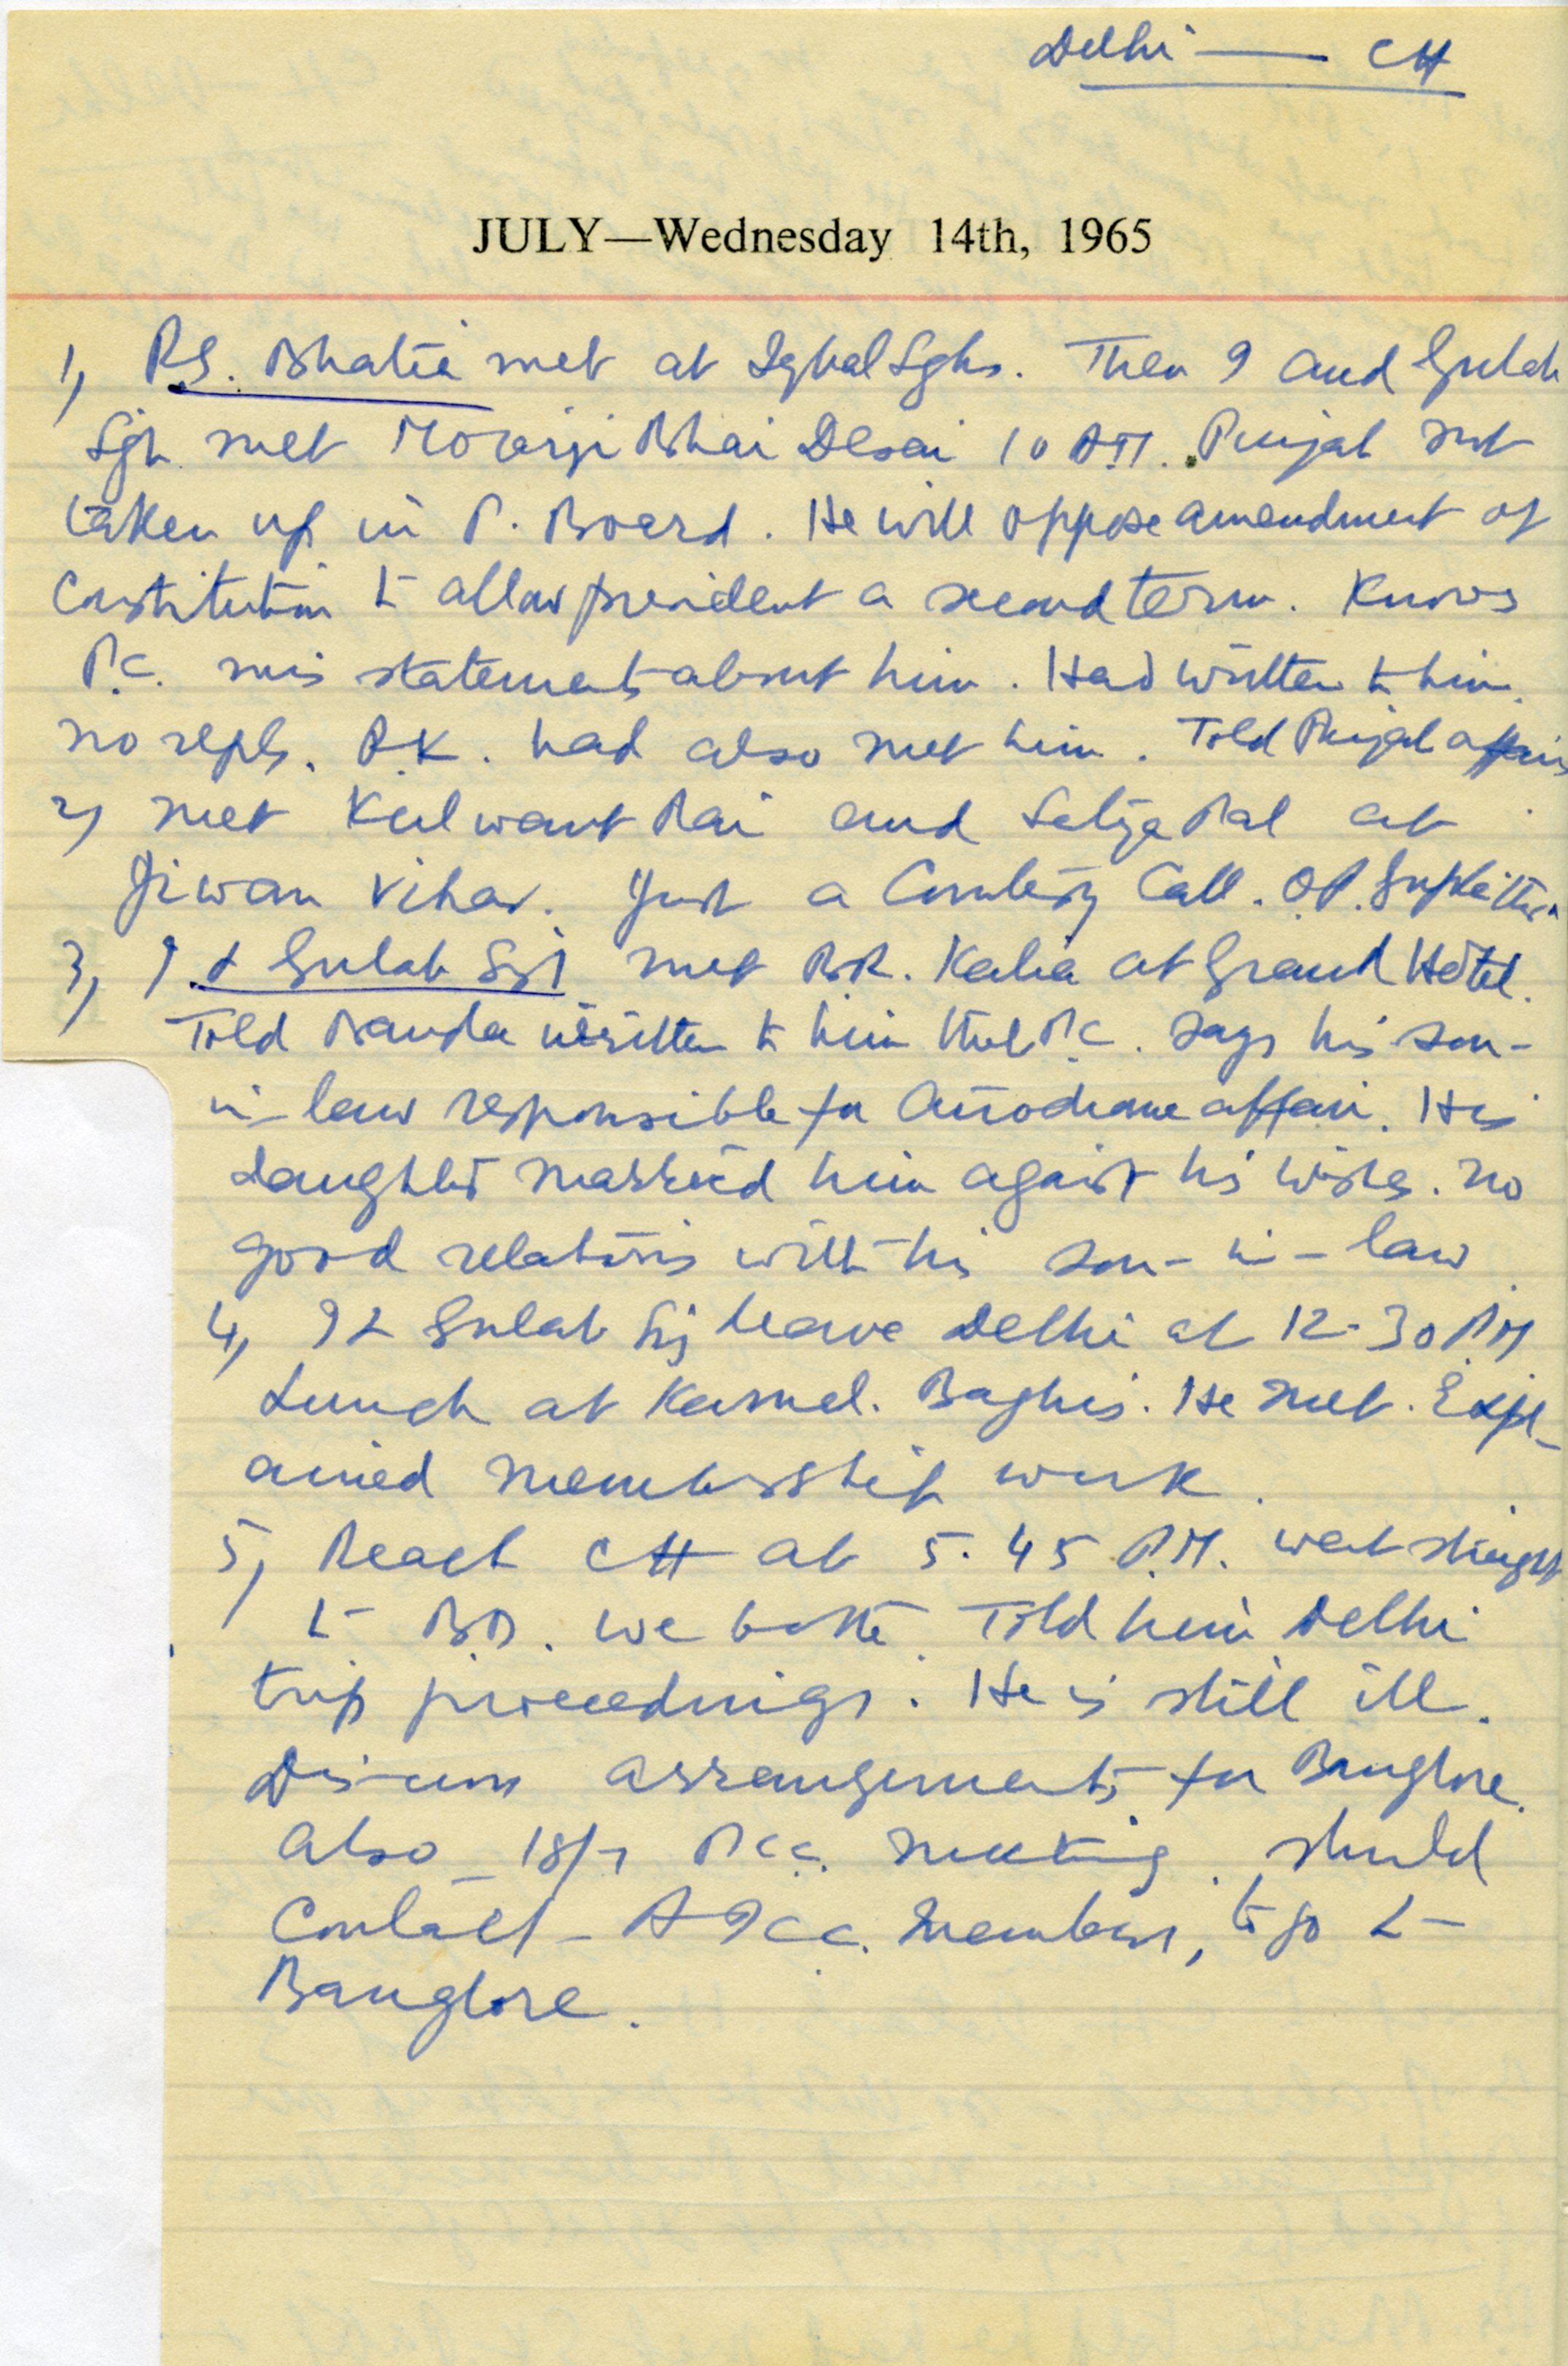 Delhi — CH
JULY—Wednesday 14th, 1965
1, P.S. Bhatia met at Iqbal Sghs. Then I and Gulab
Sgh met Morarji Bhai Desai 10 AM. Punjab not
taken up in P. Board. He will oppose amendment of
Constitution to allow president a second term. Knows
P.C. mis statements about him. Had written to him
no reply. R.K. had also met him. Told Punjab affairs
2, met Kulwant Rai and Satya Pal at
Jiwan Vihar. Just a Courtesy Call. O.P. Gupta
3, I & Gulab Sgh met B.R. Kalia at Grand Hotel.
Told Nanda written to him that P.C. says his son-
in-law responsible for affair. His
daughter married him against his wishes. no
good relations with his son-in-law
4, I & Gulab Sg leave Delhi at 12-30 PM
Lunch at Karnal. Baghis. He met. Expl-
ained membership work.
5, Reach CH at 5.45 P.M. went straight
to BD. we both. Told him Delhi
trip proceedings. He is still ill.
Discuss arrangements for Banglore.
Also 18/7 P.C.C. meeting. should
Contact A I C C. members, to go to
Banglore.